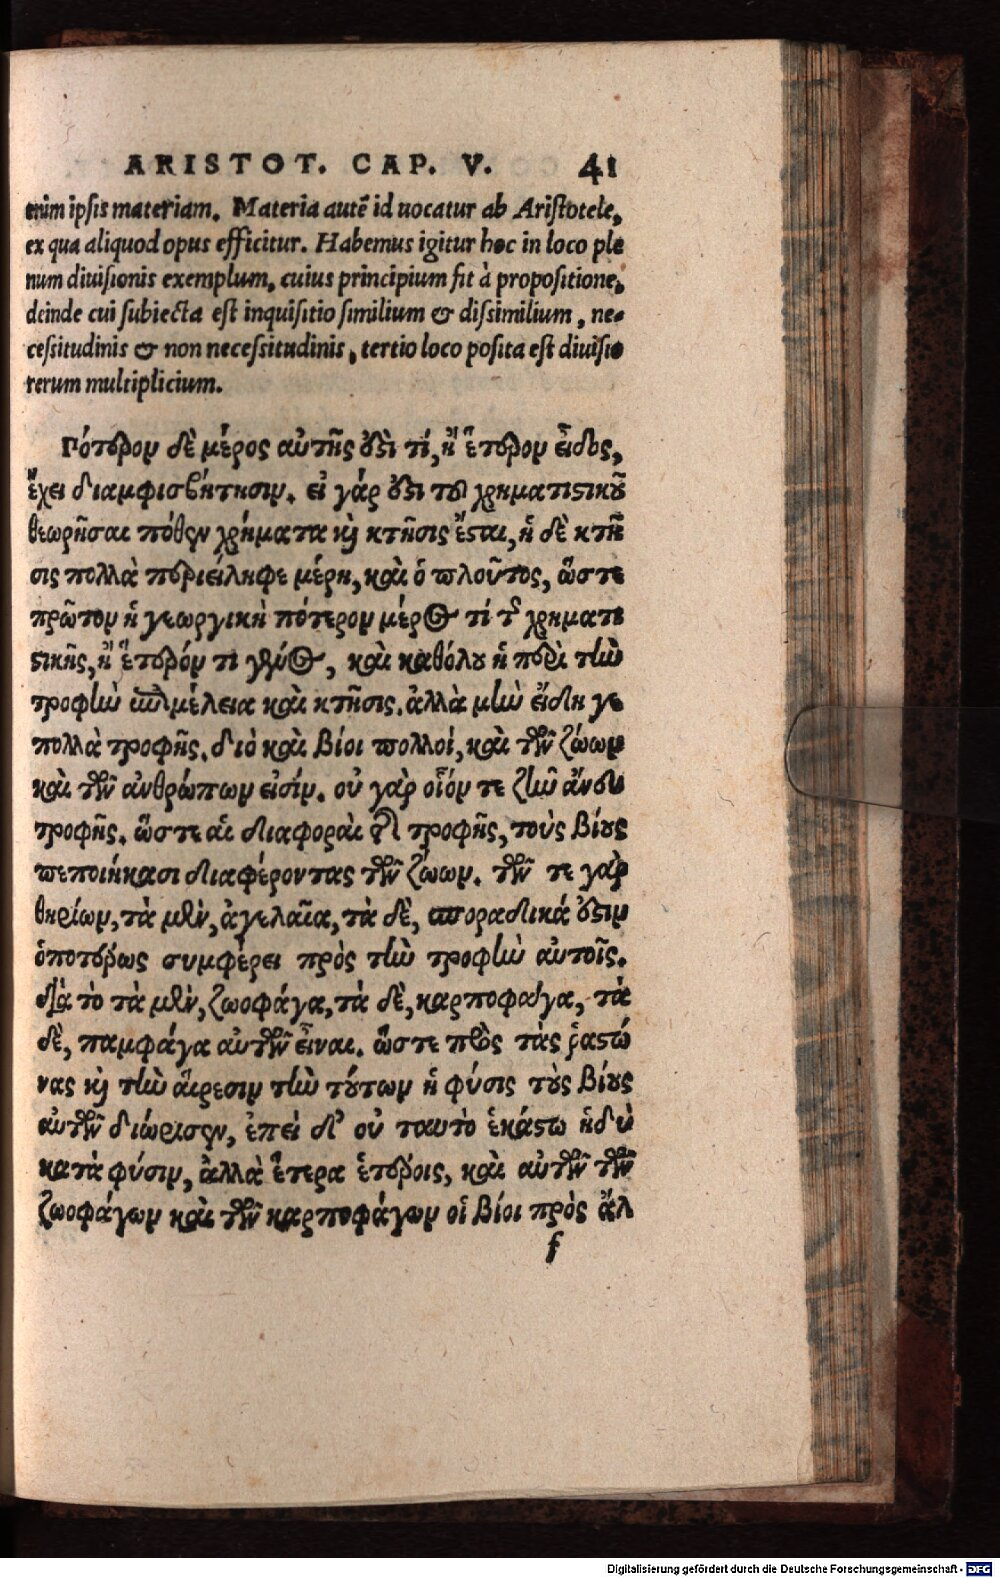 ARISTOT. CAP. V. 41
enim ipsis materiam. Materia autē id uocatur ab Aristotele,
ex qua aliquod opus efficitur. Habemus igitur hoc in loco ple
num diuisionis exemplum, cuius principium fit à propositione,
deinde cui subiecta est inquisitio similium & dissimilium, ne-
cessitudinis & non necessitudinis, tertio loco posita est diuisio
rerum multiplicium.
Πότερον δὲ μέρος αὐτῆς ὅστὶ τί, ἢ ἕτερον εἶδος,
ἔχει διαμφισβήτησιν. εἰ γάρ ὅστι τοῦ χρηματιστικοῦ
θεωρῆσαι πόθεν χρήματα καὶ κτῆσις ἔσται, ἡ δὲ κτῆ
σις πολλὰ περιείληφε μέρη, καὶ ὁ πλοῦτος, ὥστε
πρῶτον ἡ γεωργικὴ πότερον μέρος τί τῆς χρηματι
στικῆς, ἢ ἕτερόν τι γένος, καὶ καθόλου ἡ περὶ τὴν
τροφὴν ἐπιμέλεια καὶ κτῆσις. ἀλλὰ μὴν εἴδη γε
πολλὰ τροφῆς. διὸ καὶ βίοι πολλοί, καὶ τῶν ζώων
καὶ τῶν ἀνθρώπων εἰσίν. οὐ γὰρ οἷόν τε ζῆν ἄνευ
τροφῆς. ὥστε αἱ διαφοραὶ τῆς τροφῆς, τοὺς βίους
πεποιήκασι διαφέροντας τῶν ζώων. τῶν τε γὰρ
θηρίων, τὰ μὲν, ἀγελαῖα, τὰ δὲ, σποραδικά ὅστιν
ὁποτέρως συμφέρει πρὸς τὴν τροφὴν αὐτοῖς.
διὰ τὸ τὰ μὲν, ζωοφάγα, τὰ δὲ, καρποφάγα, τὰ
δὲ, παμφάγα αὐτῶν εἶναι. ὥστε πρὸς τὰς ῥαστώ
νας καὶ τὴν αἵρεσιν τὴν τούτων ἡ φύσις τοὺς βίους
αὐτῶν διώρισεν, ἐπεὶ δ' οὐ ταυτὸ ἑκάστω ἡδὺ
κατὰ φύσιν, ἀλλὰ ἕτερα ἑτέροις, καὶ αὐτῶν τῶν
ζωοφάγων καὶ τῶν καρποφάγων οἱ βίοι πρὸς ἄλ
f
Digitalisierung gefördert durch die Deutsche Forschungsgemeinschaft - DFG